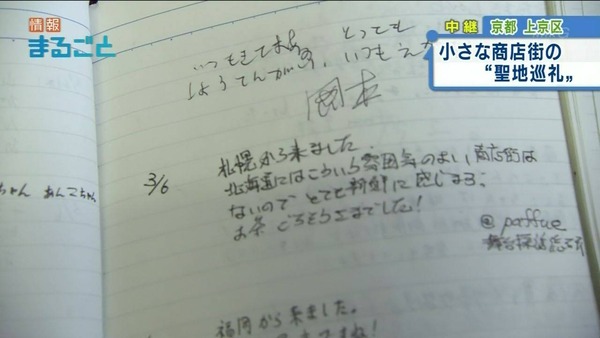 情報
まるごと
中継 京都 上京区
小さな商店街の
“聖地巡礼„
いつもきてます
とっても
3/6
札幌から来ました
北海道にはこういう雰囲気のよい商店街は
ないので とても新鮮に感じます。
お茶 ごちそうさまでした！
@ paffue
ちゃん あんこちゃん
福岡から来ました。